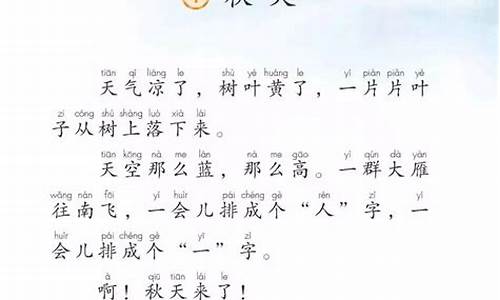 秋天
tiān qì liáng le shù yè huáng le yí piàn piàn yè
天气凉了，树叶黄了，一片片叶
zi cóng shù shàng luò xià lái
子从树上落下来。
tiān kōng nà me lán nà me gāo yì qún dà yàn
天空那么蓝，那么高。一群大雁
wǎng nán fēi yí huìr pái chéng gè rén zì yí
往南飞，一会儿排成个“人”字，一
huìr pái chéng gè yī zì
会儿排成个“一”字。
à qiū tiān lái le
啊！秋天来了！